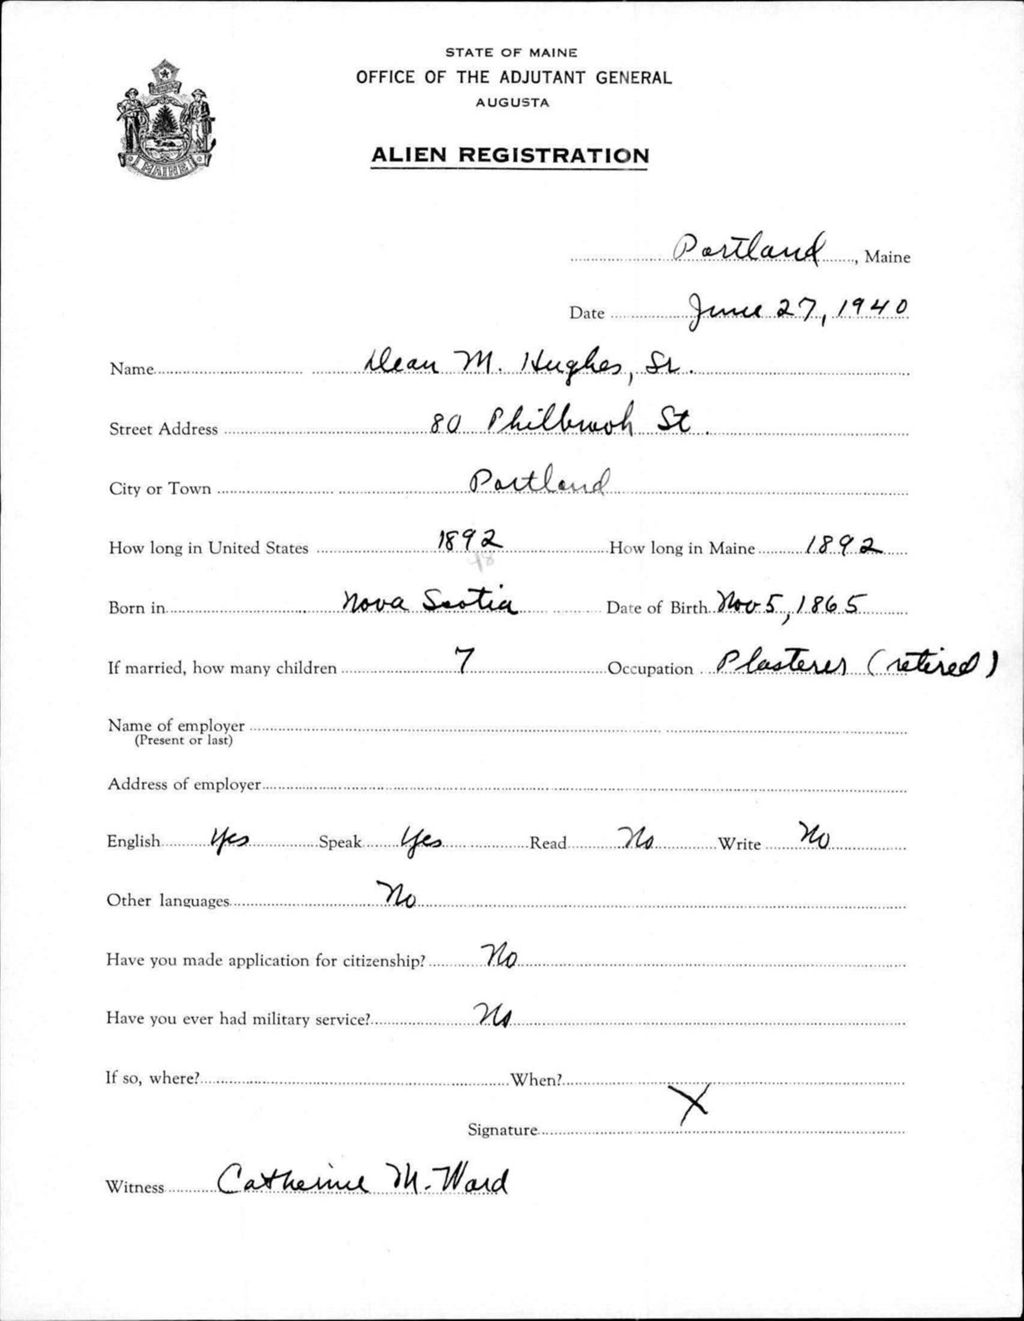 STATE OF MAINE
OFFICE OF THE ADJUTANT GENERAL
AUGUSTA
ALIEN REGISTRATION
MAINE
Portland, Maine
Date June 27, 1940
Name Dean M. Hughes, Sr.
Street Address 80 Philbrook St.
City or Town Portland
How long in United States 1892 How long in Maine 1892
48
Born in Nova Scotia Date of Birth Nov 5, 1865
If married, how many children 7 Occupation Plasterer (retired)
Name of employer
(Present or last)
Address of employer
English Yes Speak Yes Read No Write No
Other languages No
Have you made application for citizenship? No
Have you ever had military service? No
If so, where? When?
Signature X
Witness Catherine M. Ward